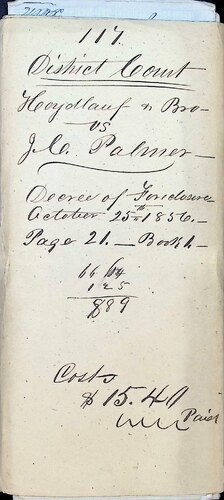 117.
District Court
Hoydlauf n Bro
vs
J. C. Palmer
Decree of Foreclosure
October 25th 1856.
Page 21. — Book h
66 64
1 25
889
Costs
$15.40
Paid